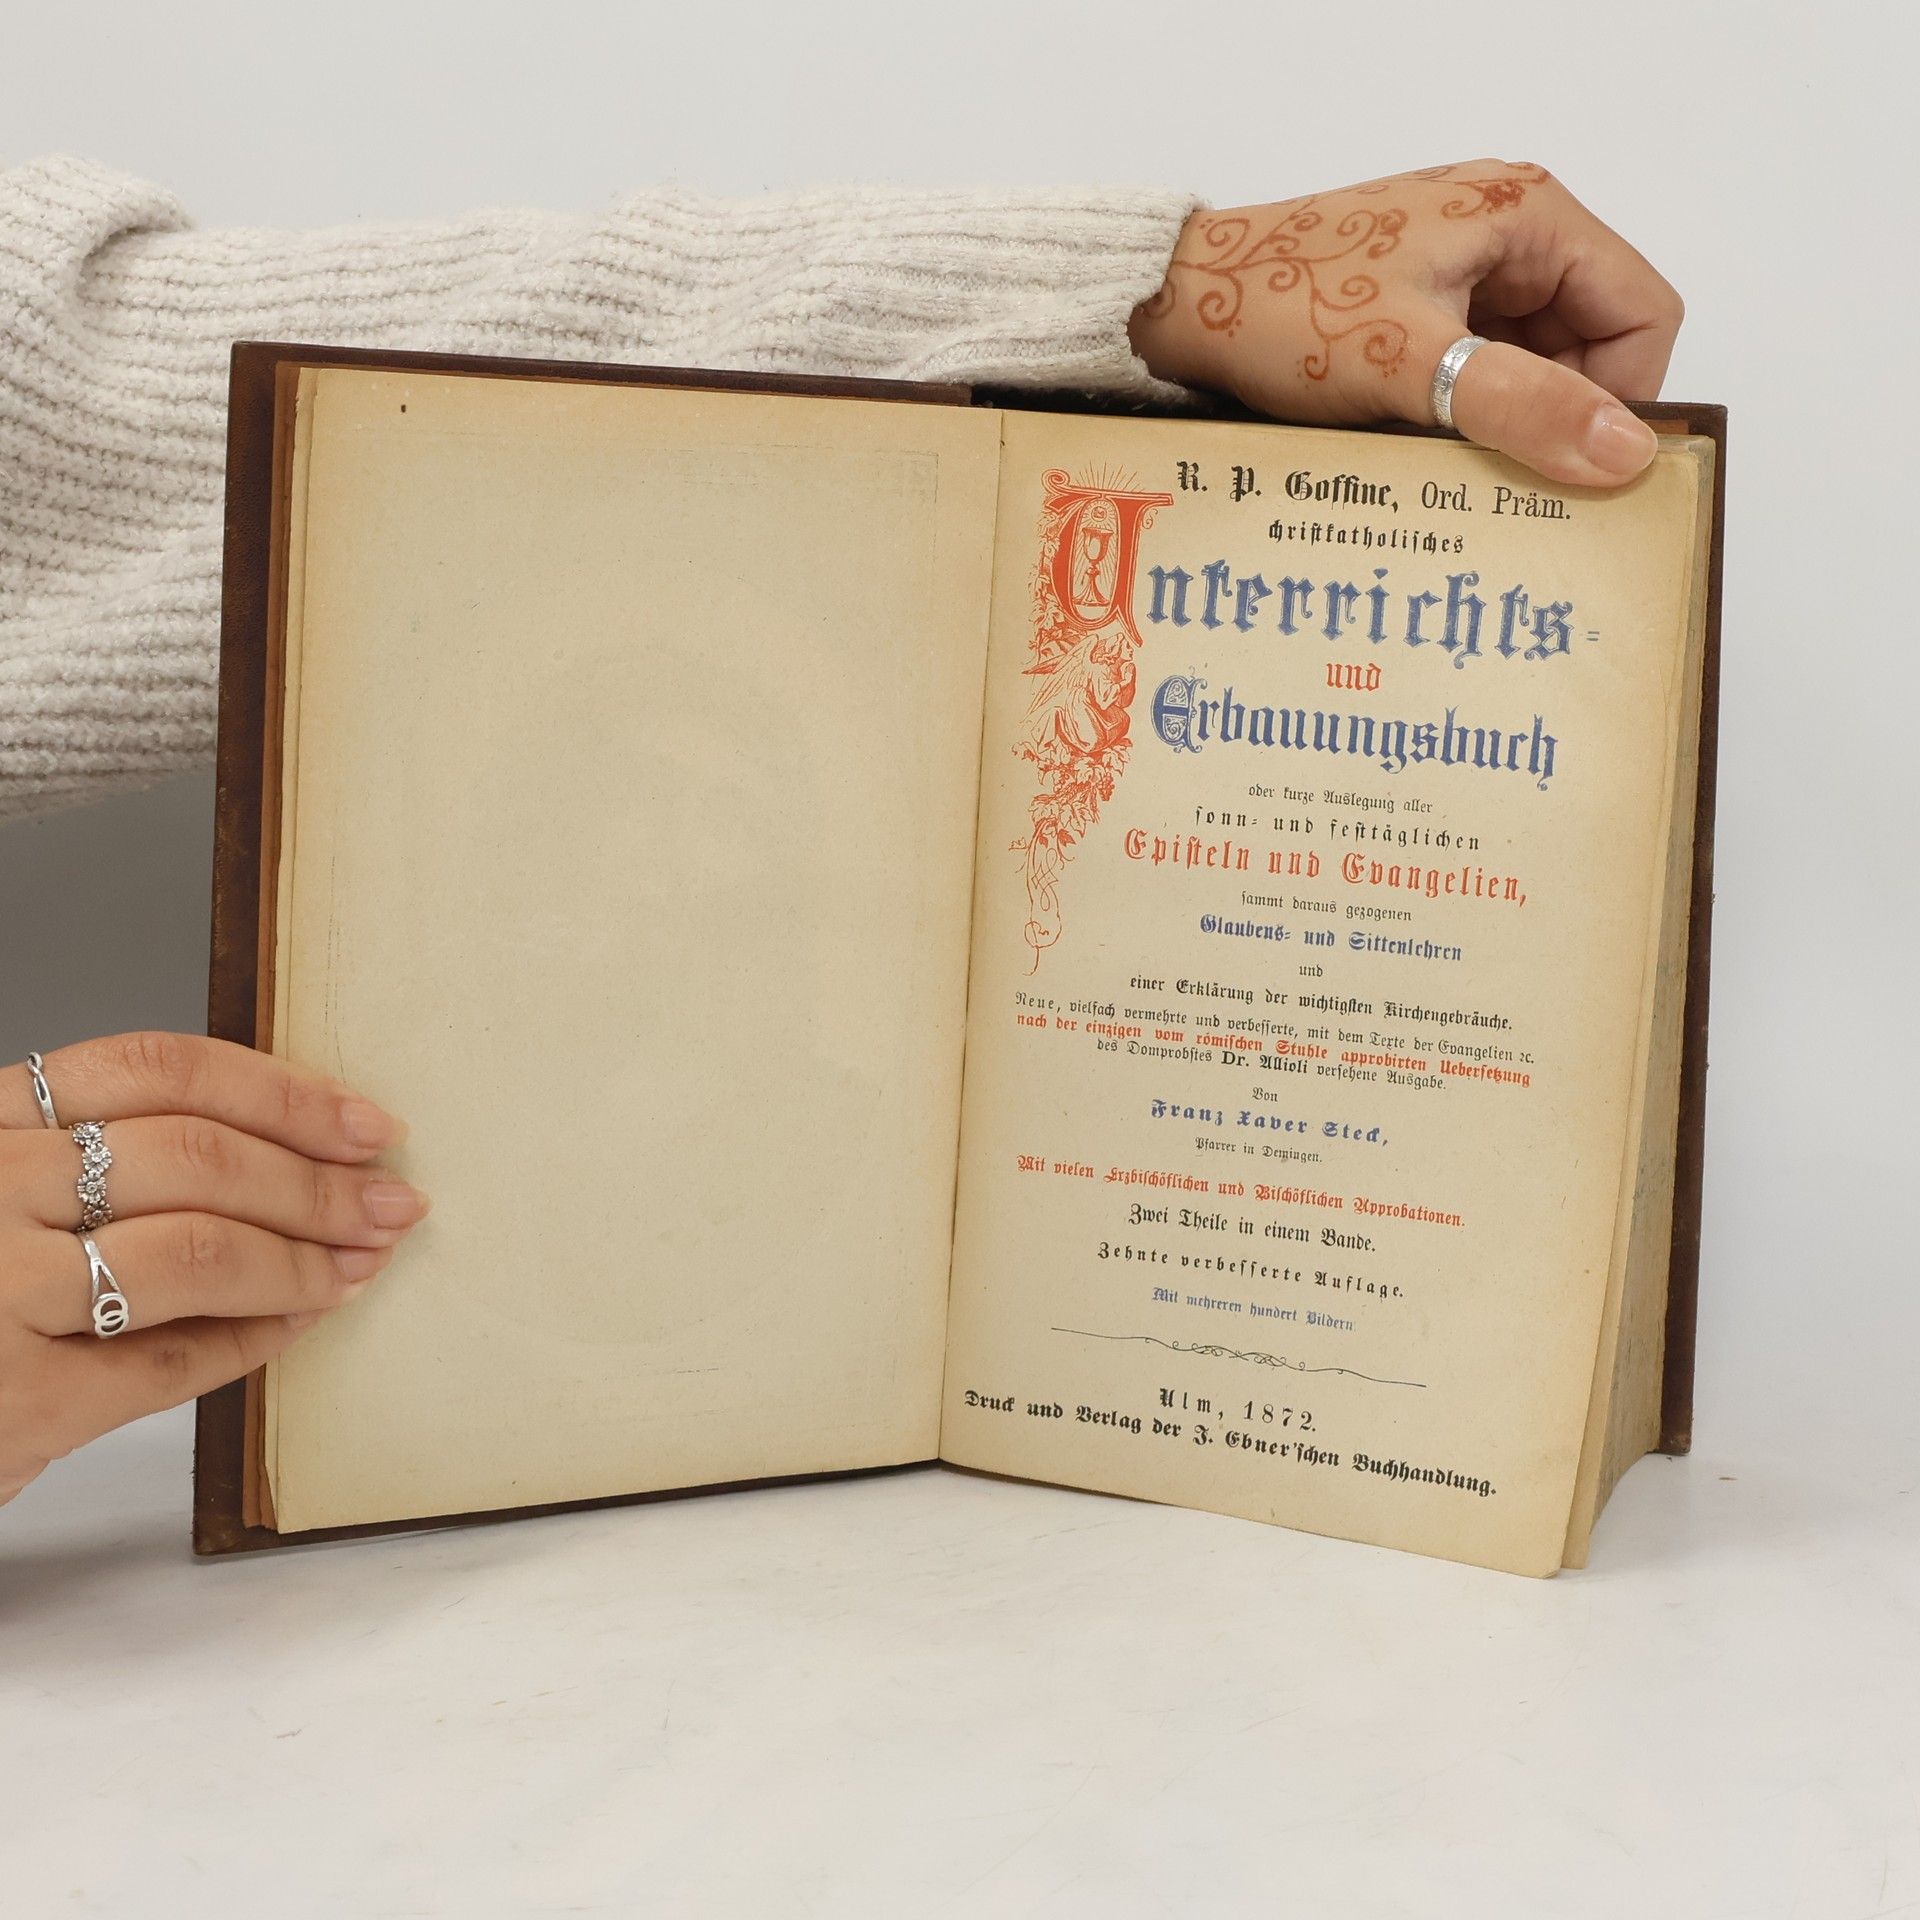 R. P. Goffine, Ord. Präm.
christkatholisches
Unterrichts-
und
Erbauungsbuch
oder kurze Auslegung aller
sonn- und festtäglichen
Episteln und Evangelien,
sammt daraus gezogenen
Glaubens- und Sittenlehren
und
einer Erklärung der wichtigsten Kirchengebräuche.
Neue, vielfach vermehrte und verbesserte, mit dem Texte der Evangelien ꝛc.
nach der einzigen vom römischen Stuhle approbirten Uebersetzung
des Domprobstes Dr. Allioli versehene Ausgabe.
Von
Franz Xaver Steck,
Pfarrer in Demingen.
Mit vielen Erzbischöflichen und Bischöflichen Approbationen.
Zwei Theile in einem Bande.
Zehnte verbesserte Auflage.
Mit mehreren hundert Bildern.
Ulm, 1872.
Druck und Verlag der J. Ebner'schen Buchhandlung.